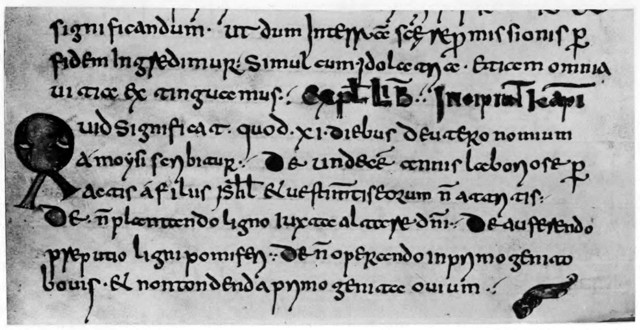 significandum · ut dum In terra scē repromissionis p̄
fidem Ingredimur; Simul cum idolatria · Et iam omnia
uitia Extinguamus :· Expł Lib̄ · Incipiunt kapi
Quid significat · quod · xi · diebus deuteronomium
a moysi scribitur · De undecē annis laboriose p̄
actis á filiis isrhł & uestim̄tis eorum n̄
De · n̄ plantando ligno iuxta altare dn̄i · De auferendo
preputio ligni pomiferi · De n̄ operando in primogenito
bouis · & non tondenda primogenita ouium ·